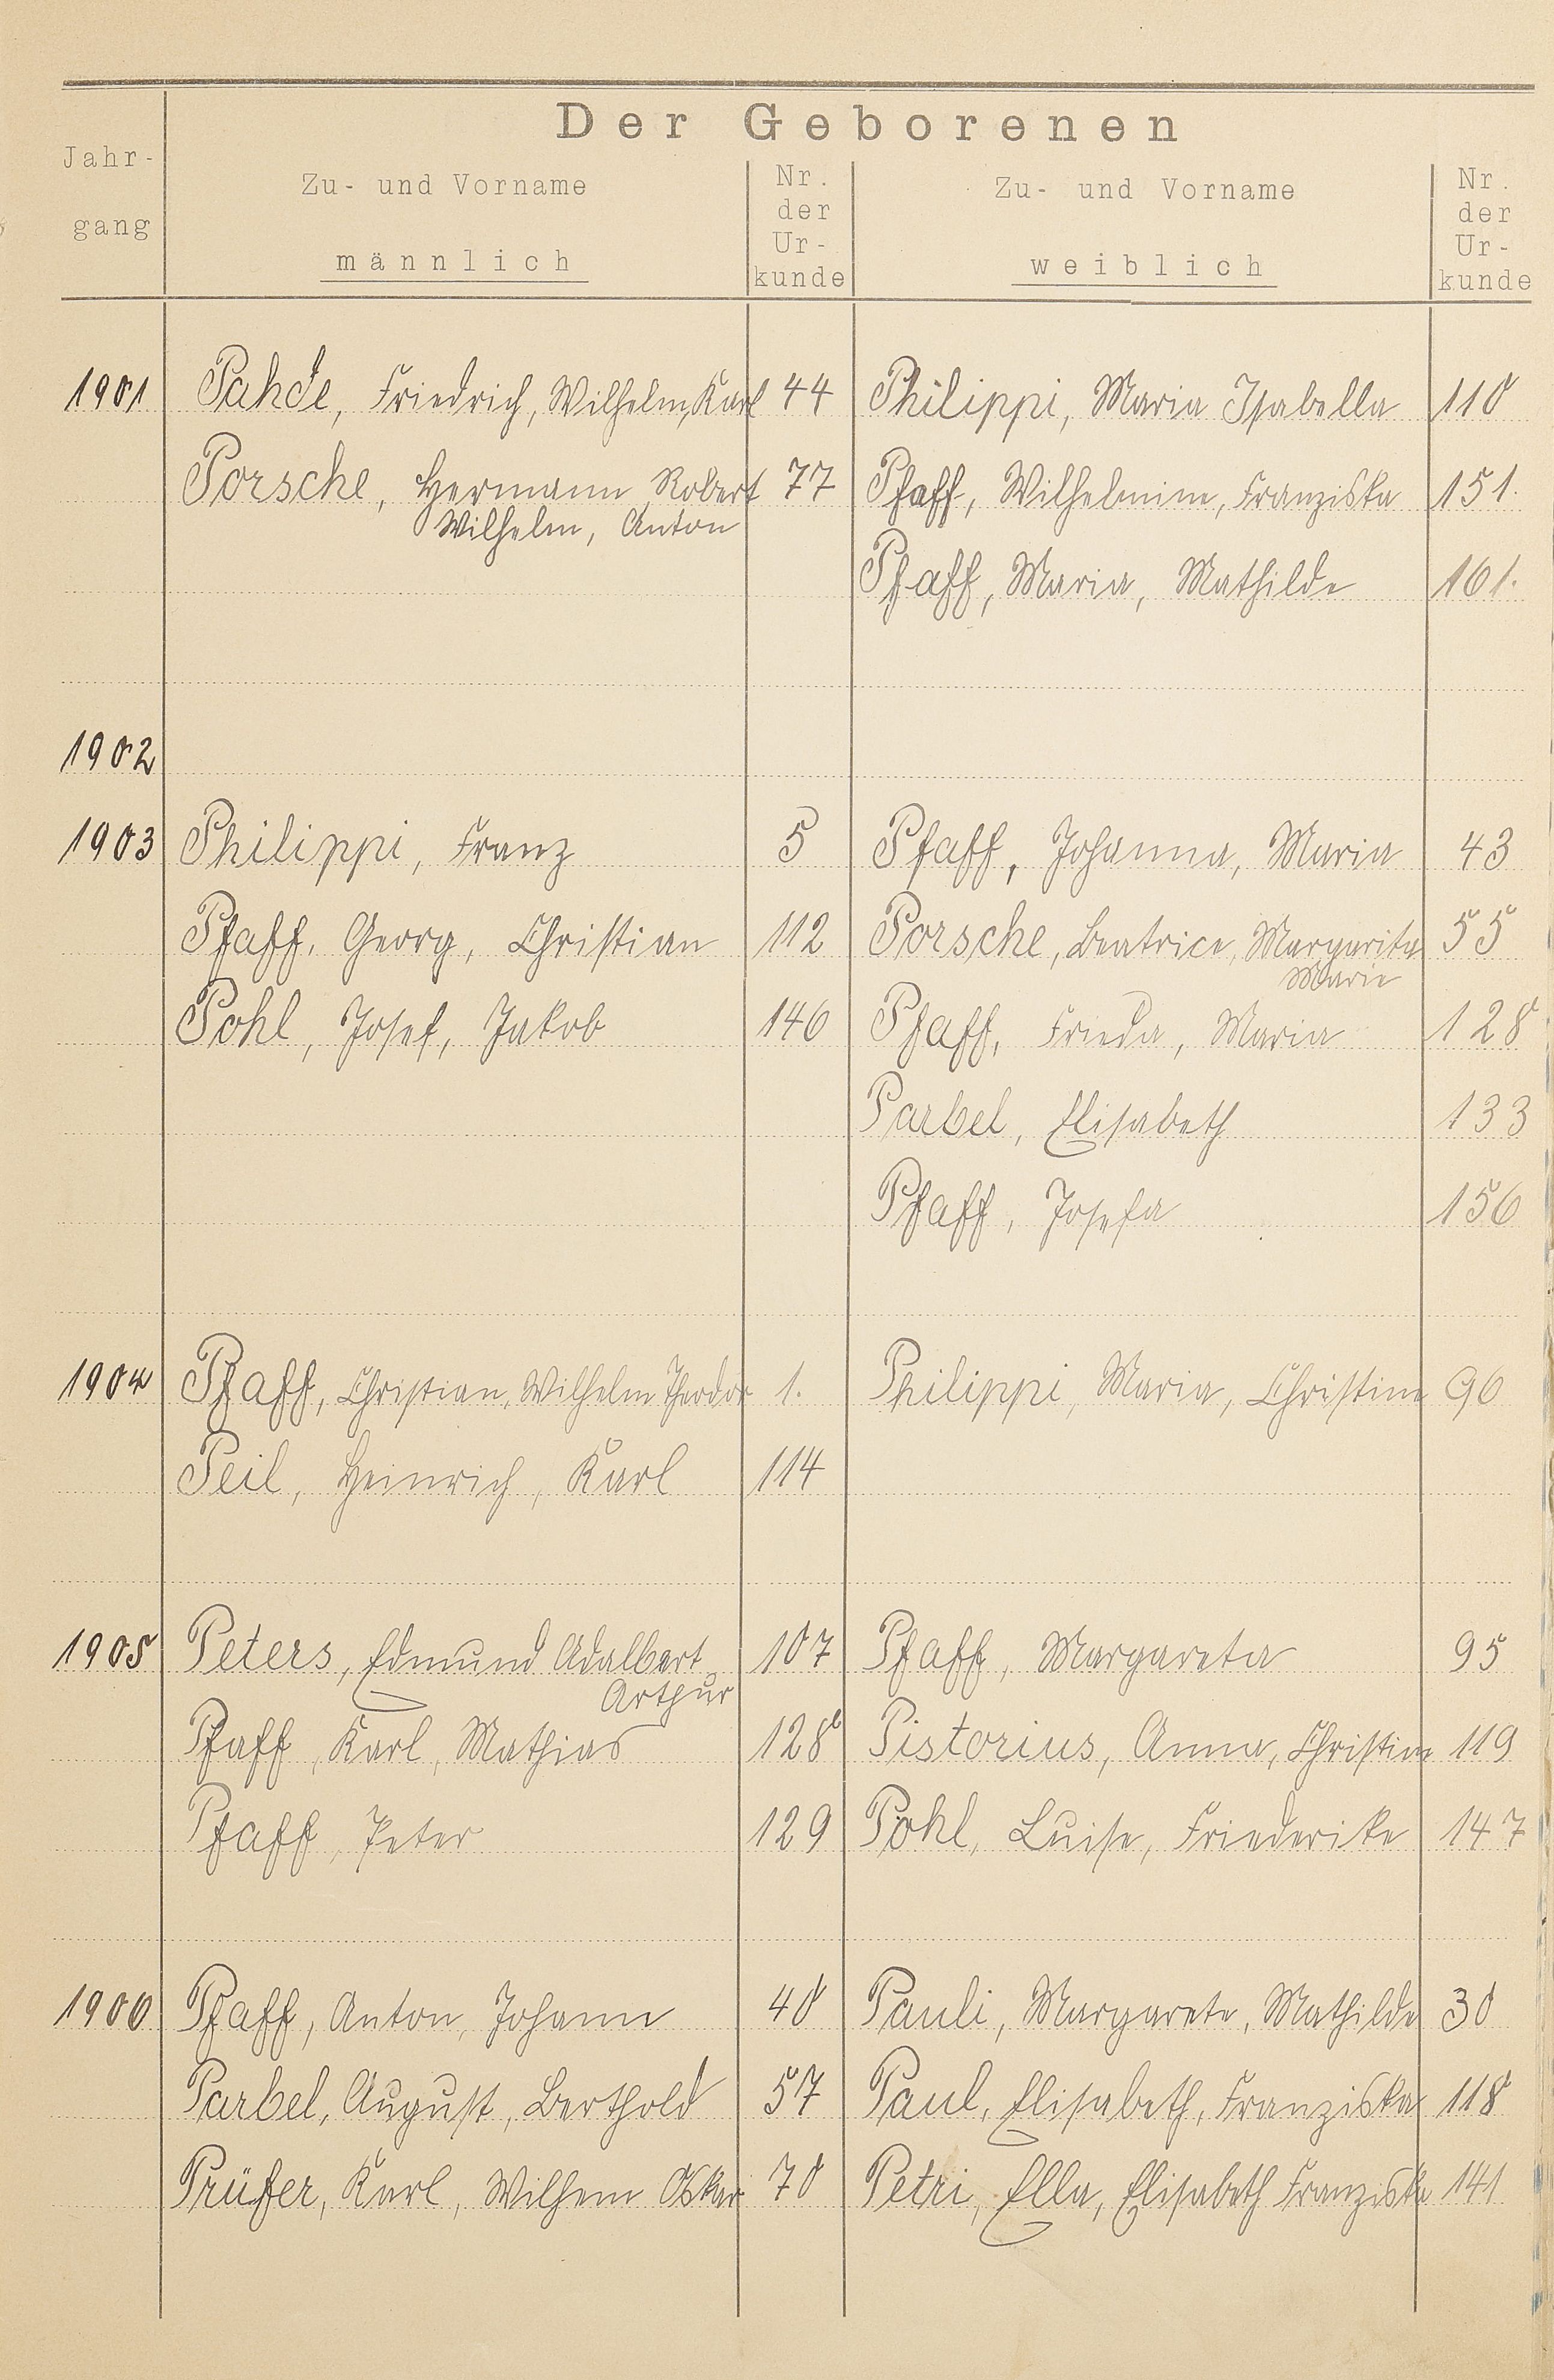 Der Geborenen
Jahr-
gang
Zu- und Vorname
männlich
Nr.
der
Ur-
kunde
Zu- und Vorname
weiblich
Nr.
der
Ur-
kunde
1901 Pahde, Friedrich, Wilhelm, Karl 44 Philippi, Maria Isabella 110
Porsche, Hermann Robert 77 Pfaff, Wilhelmine, Franziska 151.
Wilhelm, Anton
Pfaff, Maria, Mathilde 161.
1902
1903 Philippi, Franz 5 Pfaff, Johanna, Maria 43
Pfaff, Georg, Christian 112 Porsche, Beatrice, Margarita 55
Marie
Pohl, Josef, Jakob 146 Pfaff, Frieda, Maria 128
Parbel, Elisabeth 133
Pfaff, Josefa 156
1904 Pfaff, Christian, Wilhelm Theodor 1. Philippi, Maria, Christine 96
Peil, Heinrich, Karl 114
1905 Peters, Edmund Adalbert 107 Pfaff, Margareta 95
Arthur
Pfaff, Karl, Mathias 128 Pistorius, Anna, Christine 119
Pfaff, Peter 129 Pohl, Luise, Friederike 147
1906 Pfaff, Anton, Johann 40 Pauli, Margarete, Mathilde 30
Parbel, August, Berthold 57 Paul, Elisabeth, Franziska 118
Prüfer, Karl, Wilhem Oskar 70 Petri, Ella, Elisabeth Franziska 141